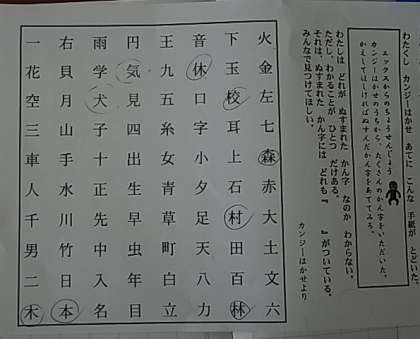 わたくし カンジーはかせ あてに こんな 手紙が とどいた。
エックスからのちょうせんじょう
カンジーはかせのうちから、たくさんのかん字をいただいた。
かえしてほしければぬすんだかん字をあててみろ。
わたしは どれが ぬすまれた かん字 なのか わからない。
ただし、わかることが ひとつ だけある。
それは、ぬすまれた かん字には どれも『　　』がついている。
みんなで見つけてほしい。
カンジーはかせより
火金左七森赤大土文六
下玉校耳上石村田百林
音休口字小夕足天八力
王九五糸女青草町白立
円気見四出生早虫年目
雨学犬子十正先中入名
右貝月山手水川竹日本
一花空三車人千男二木